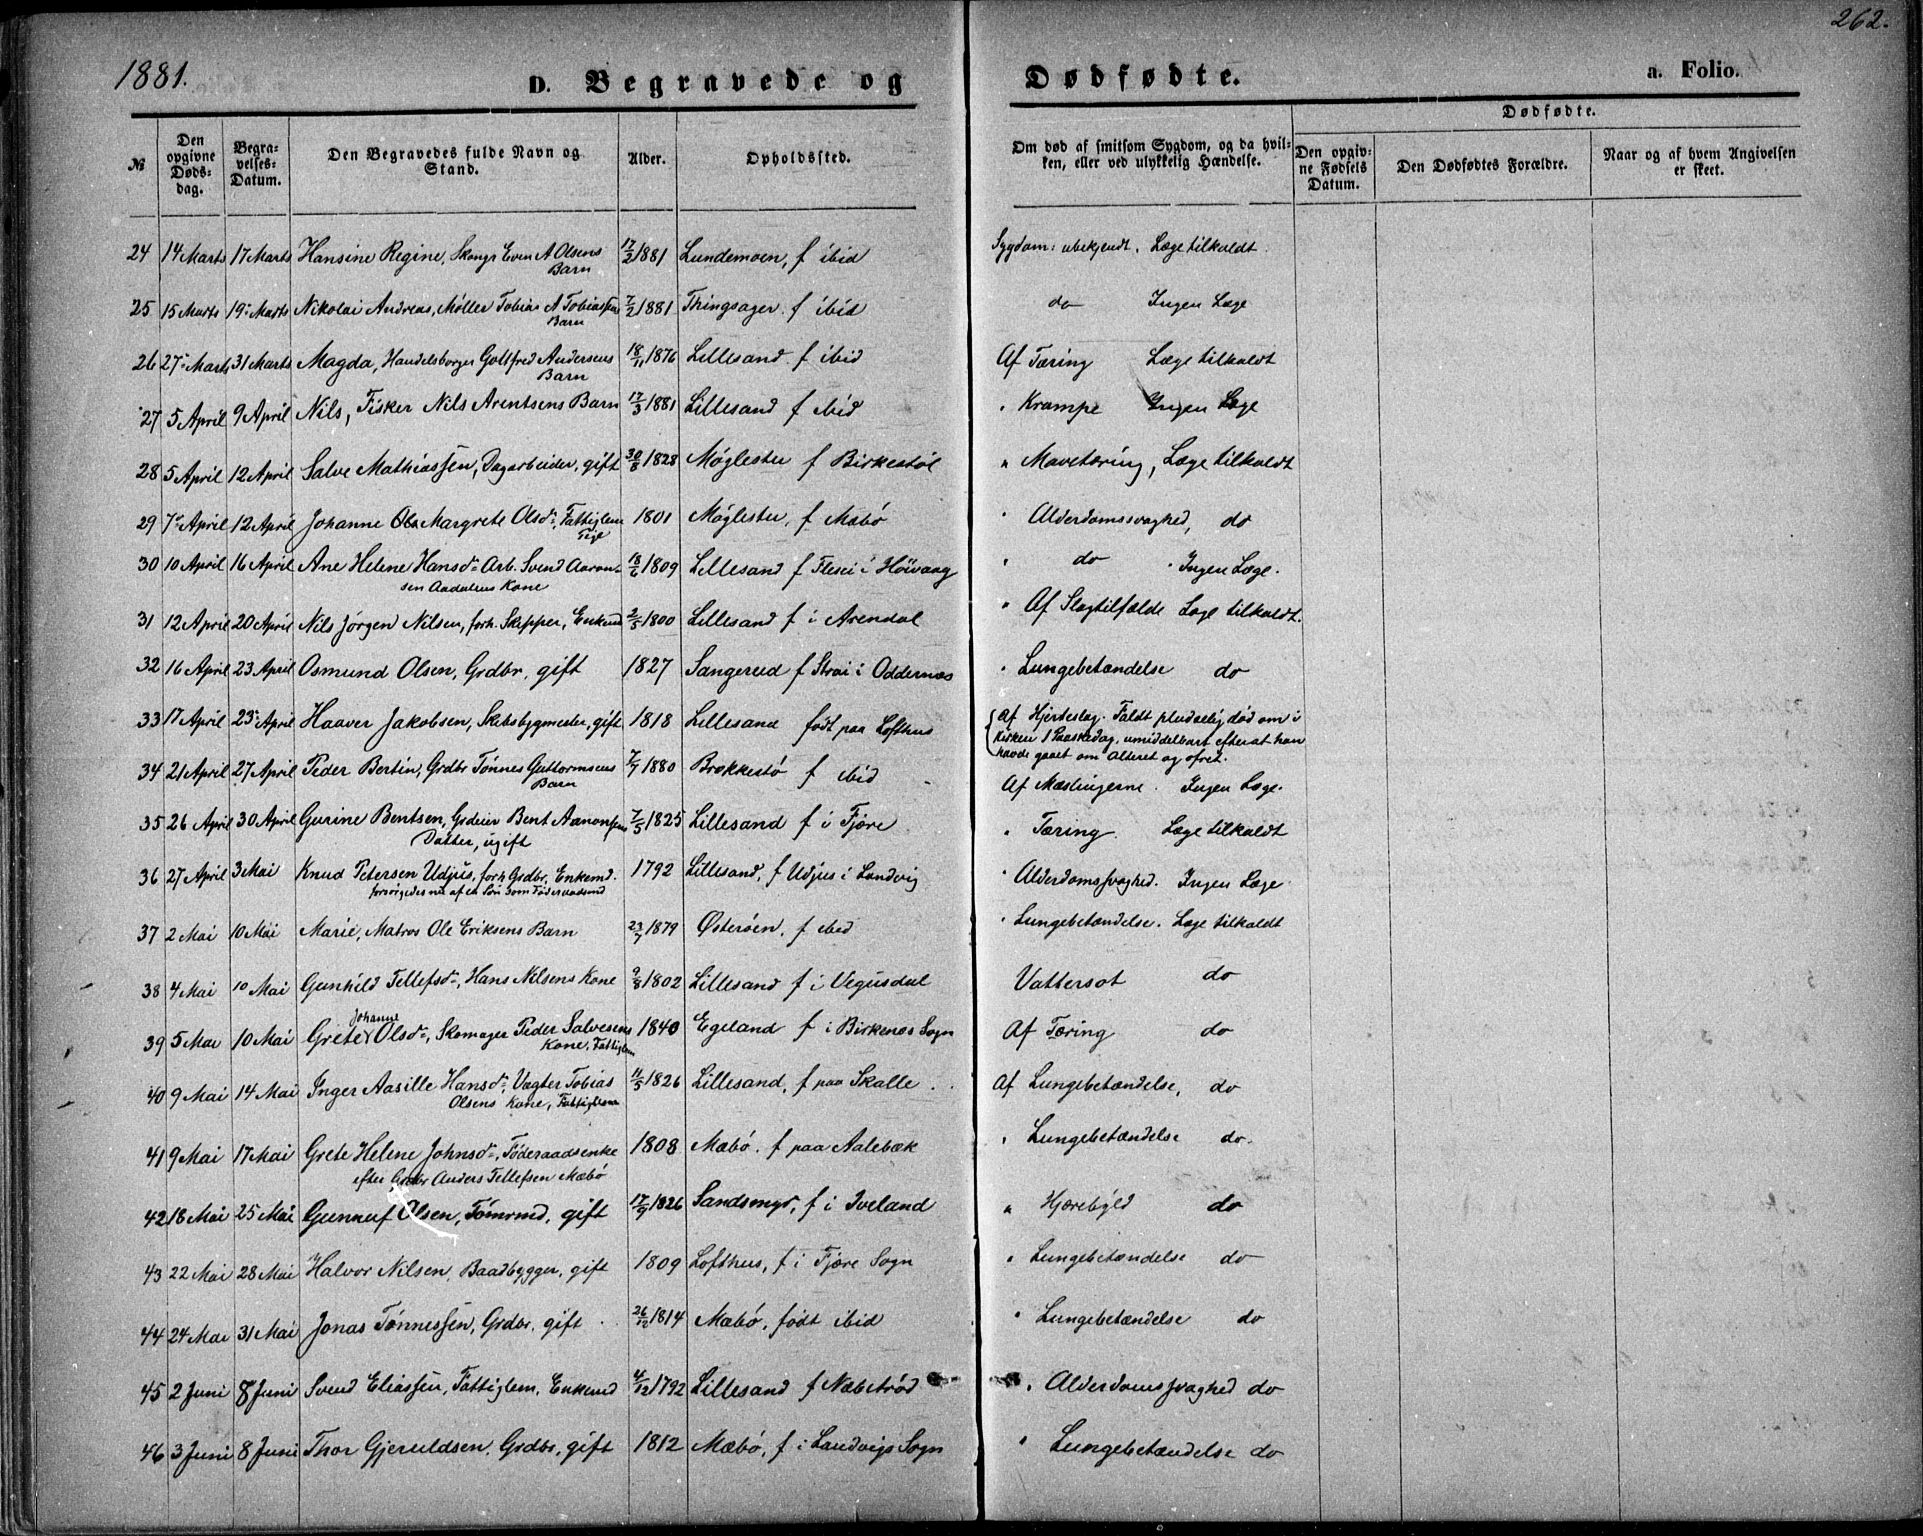 262.
1881.
D. Begravede og Dødfødte.
a. Folio.
№
Den opgivne Døds-dag.
Begra-velses-Datum.
Den Begravedes fulde Navn og Stand.
Alder.
Opholdssted.
Om død af smitsom Sygdom, og da hvil-ken, eller ved ulykkelig Hændelse.
Dødfødte.
Den opgiv-ne Fødsels Datum.
Den Dødfødtes Forældre.
Naar og af hvem Angivelsen er skeet.
24 14 Marts 17 Marts Hansine Regine, Even A Olsens 17/2 1881 Lundemoen, f ibid Sygdom: ubekjendt. Læge tilkaldt
Barn
25 15 Marts 19 Marts Nikolai Andreas, Møller Tobias A Tobiassens 7/2 1881 Thingsager f ibid do Ingen Læge
Barn
26 27 Marts 31 Marts Magda, Handelsborger Gottfred Andersens 18/11 1876 Lillesand f ibid Af Tæring Læge tilkaldt
Barn
27 5 April 9 April Nils, Fisker Nils Arentsens Barn 17/3 1881 Lillesand f ibid " Krampe Ingen Læge
28 5 April 12 April Salve Mathiassen, Dagarbeider, gift 30/8 1828 Møglestu f Birkestøl " Mavetæring, Læge tilkaldt
29 7 April 12 April Johanne Margrete Olsd., Fattiglem 1801 Møglestu, f Mæbø " Alderdomssvaghed, do
Pige
30 10 April 16 April Ane Helene Hansd. Arb. Svend Aaron- 18/6 1809 Lillesand f i Høivaag " do Ingen Læge.
sen Aadalens Kone
31 12 April 20 April Nils Jørgen Nilsen, forh. Skipper, Enkemd 2/5 1800 Lillesand f i Arendal " Af Slagtilfælde Læge tilkaldt.
32 16 April 23 April Osmund Olsen, Grdbr, gift 1827 Sangereid f Strai i Oddernes " Lungebetændelse do
33 17 April 23 April Haaver Jakobsen, Skibsbygmester, gift 1818 Lillesand født paa Lofthus Af Hjerteslag. Faldt pludselig død om i
Kirken 1 Paaskedag, umiddelbart efterat han
havde gaaet om Alteret og ofret.
34 21 April 27 April Peder Bertin, Grdbr Tønnes Guttormsens 7/7 1880 Brækkestø f ibid Af Mæslingerne. Ingen Læge.
Barn
35 26 April 30 April Gurine Bentsen, Grdeier Bent Aanonsens 7/5 1825 Lillesand f i Fjære " Tæring. Læge tilkaldt
Datter, ugift
36 27 April 3 Mai Knud Petersen Udjus, forh Grdbr, Enkemd. 1792 Lillesand, f Udjus i Landvig " Alderdomssvaghed. Ingen Læge
forsørgedes nu af en Søn som Føderaadsmd
37 2 Mai 10 Mai Marie, Matros Ole Eriksens Barn 23/7 1879 Østerøen, f ibid " Lungebetændelse. Læge tilkaldt
38 4 Mai 10 Mai Gunhild Tellefsd., Hans Nilsens Kone 9/8 1802 Lillesand f i Vegusdal Vattersot do
Johanne
39 5 Mai 10 Mai Grete Olsd., Skomager Peder Salvesens 1840 Egeland f i Birkenes Sogn Af Tæring do
Kone, Fattiglem
40 9 Mai 14 Mai Inger Aasille Hansd., Vægter Tobias 11/5 1826 Lillesand, f paa Skalle. Af Lungebetændelse, do
Olsens Kone, Fattiglem
41 9 Mai 17 Mai Grete Helene Johnsd., Føderaadsenke 1808 Mæbø. f paa Aalebæk " Lungebetændelse do.
efter Grdbr Anders Tellefsen Mæbø
42 18 Mai 25 Mai Gunnuf Olsen, Tømrmd, gift 17/9 1826 Sandsmyr, f i Iveland " do
43 22 Mai 28 Mai Halvor Nilsen, Baadbygger, gift 1809 Lofthus, f i Fjære Sogn " Lungebetændelse do
44 24 Mai 31 Mai Jonas Tønnessen, Grdbr, gift 26/12 1814 Mæbø, født ibid " Lungebetændelse do
45 2 Juni 8 Juni Svend Eliassen, Fattiglem, Enkemd 4/12 1792 Lillesand f Næbstrød " Alderdomssvaghed do
46 3 Juni 8 Juni Thor Gjeruldsen, Grdbr, gift 1812 Mæbø, f i Landvigs Sogn " Lungebetændelse do